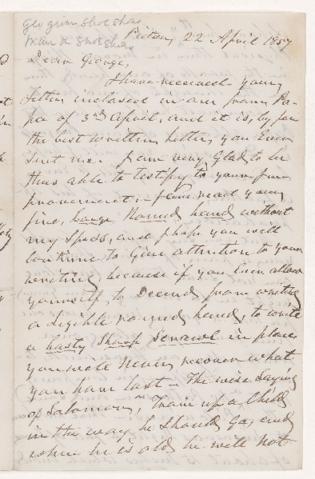 Pictou, 22 April 1857
Dear George,
I have received your
letter inclosed in one from Pa-
pa of 3rd April, and it is, by far
the best written letter, you Ever
Sent me. I am very Glad to be
thus able to testify to your Im-
provement. I can read your
fine, large Round hand without
my Specs, and I hope you will
continue to Give attention to your
writing because if you Ever allow
yourself, to Descend from writing
a legible round hand, to write
a hasty Sharp Scrawl in place
you will Never recover what
you have lost - The wise Saying
of Solomon, "Train up a Child
in the way he Should Go, and
when he is old he will not